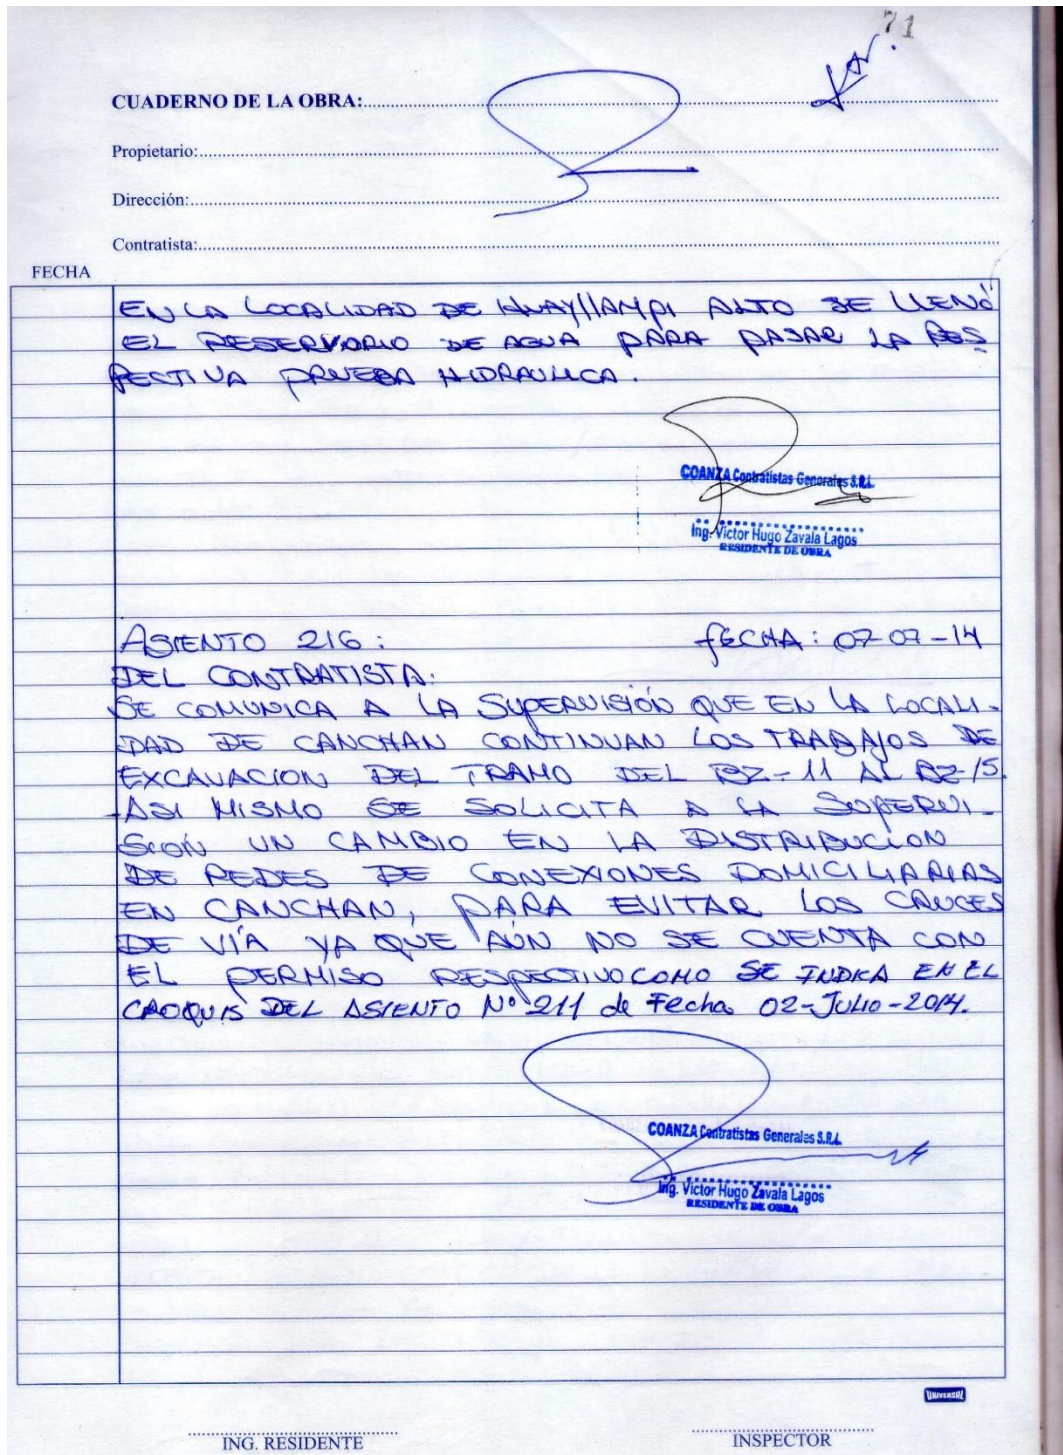 71
CUADERNO DE LA OBRA:
Propietario:
Dirección:
Contratista:
FECHA
EN LA LOCALIDAD DE HUAYLLAMPI ALTO SE LLENÓ
EL RESERVORIO DE AGUA PARA PASAR LA RES
PECTIVA PRUEBA HIDRAULICA.
COANZA Contratistas Generales S.R.L.
Ing. Victor Hugo Zavala Lagos
RESIDENTE DE OBRA
ASIENTO 216: FECHA: 07-07-14
DEL CONTRATISTA:
SE COMUNICA A LA SUPERVISIÓN QUE EN LA LOCALI-
DAD DE CANCHAN CONTINUAN LOS TRABAJOS DE
EXCAVACION DEL TRAMO DEL BZ-11 AL BZ-15.
ASI MISMO SE SOLICITA A LA SUPERVI-
SIÓN UN CAMBIO EN LA DISTRIBUCION
DE REDES DE CONEXIONES DOMICILIARIAS
EN CANCHAN, PARA EVITAR LOS CRUCES
DE VÍA YA QUE AÚN NO SE CUENTA CON
EL PERMISO RESPECTIVO COMO SE INDICA EN EL
CROQUIS DEL ASIENTO Nº 211 de Fecha 02-JULIO-2014.
COANZA Contratistas Generales S.R.L.
Ing. Victor Hugo Zavala Lagos
RESIDENTE DE OBRA
UNIVERSAL
ING. RESIDENTE INSPECTOR